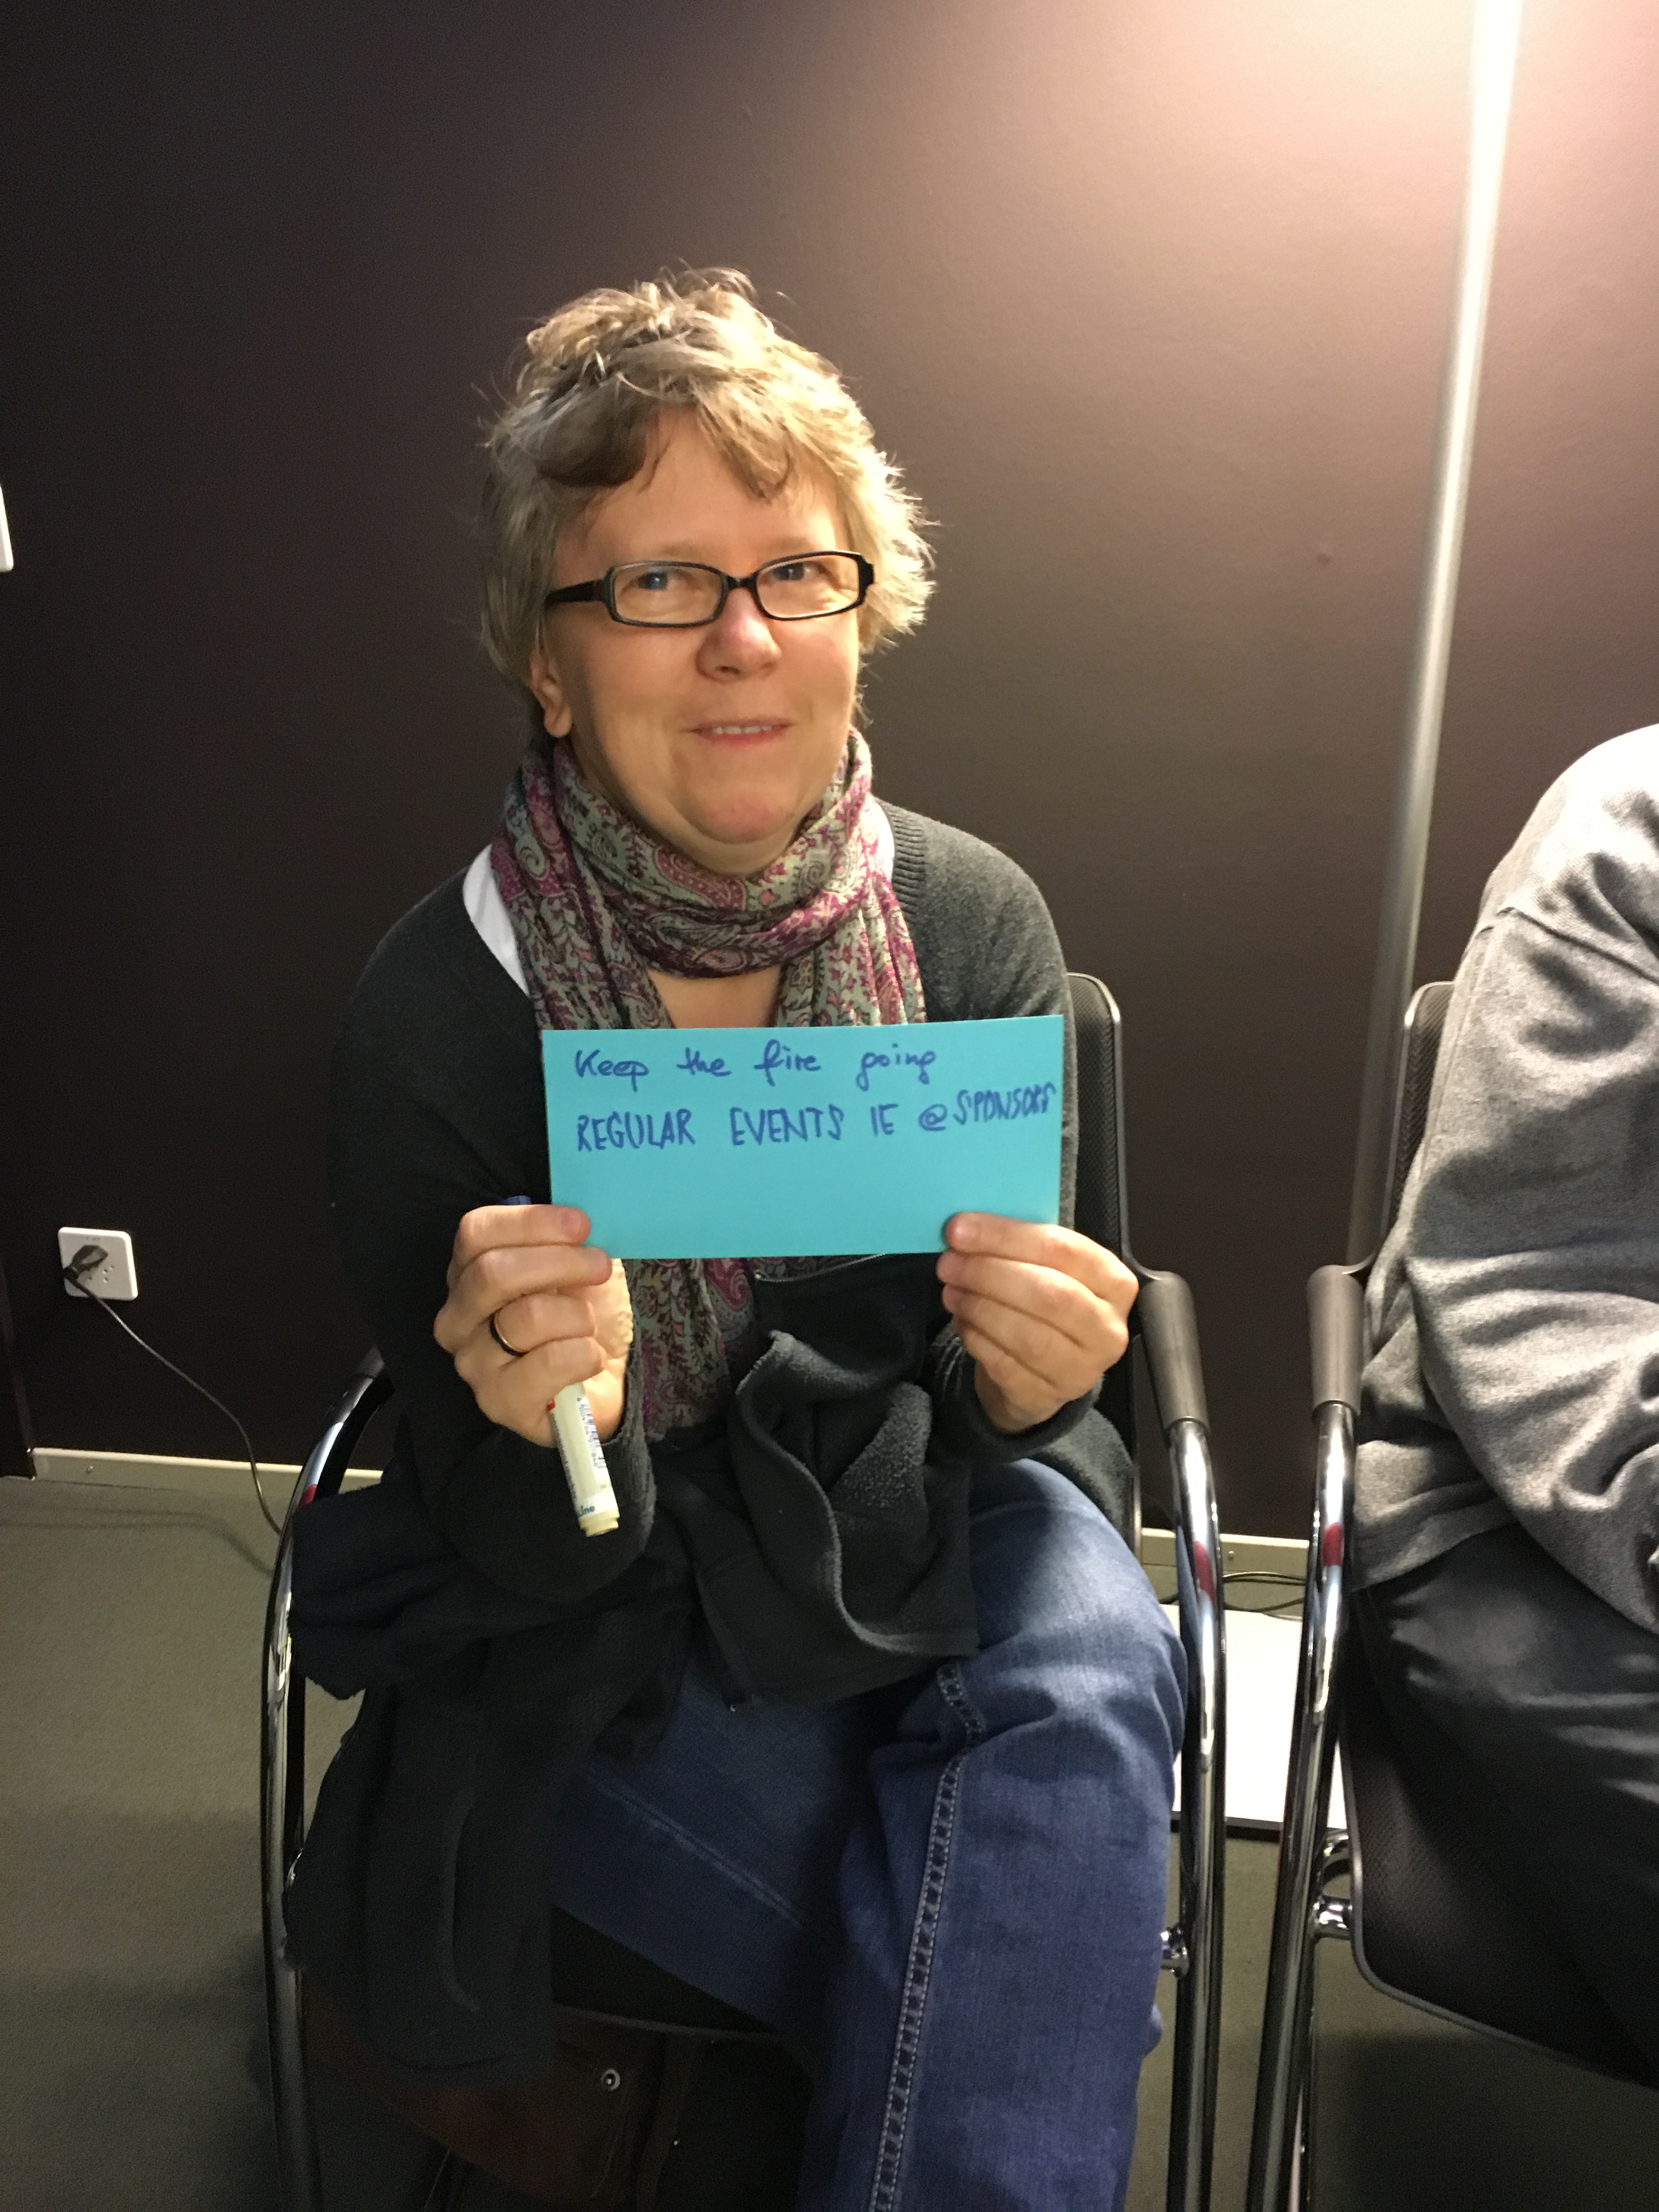 Keep the fire going
REGULAR EVENTS IE @SPONSORS